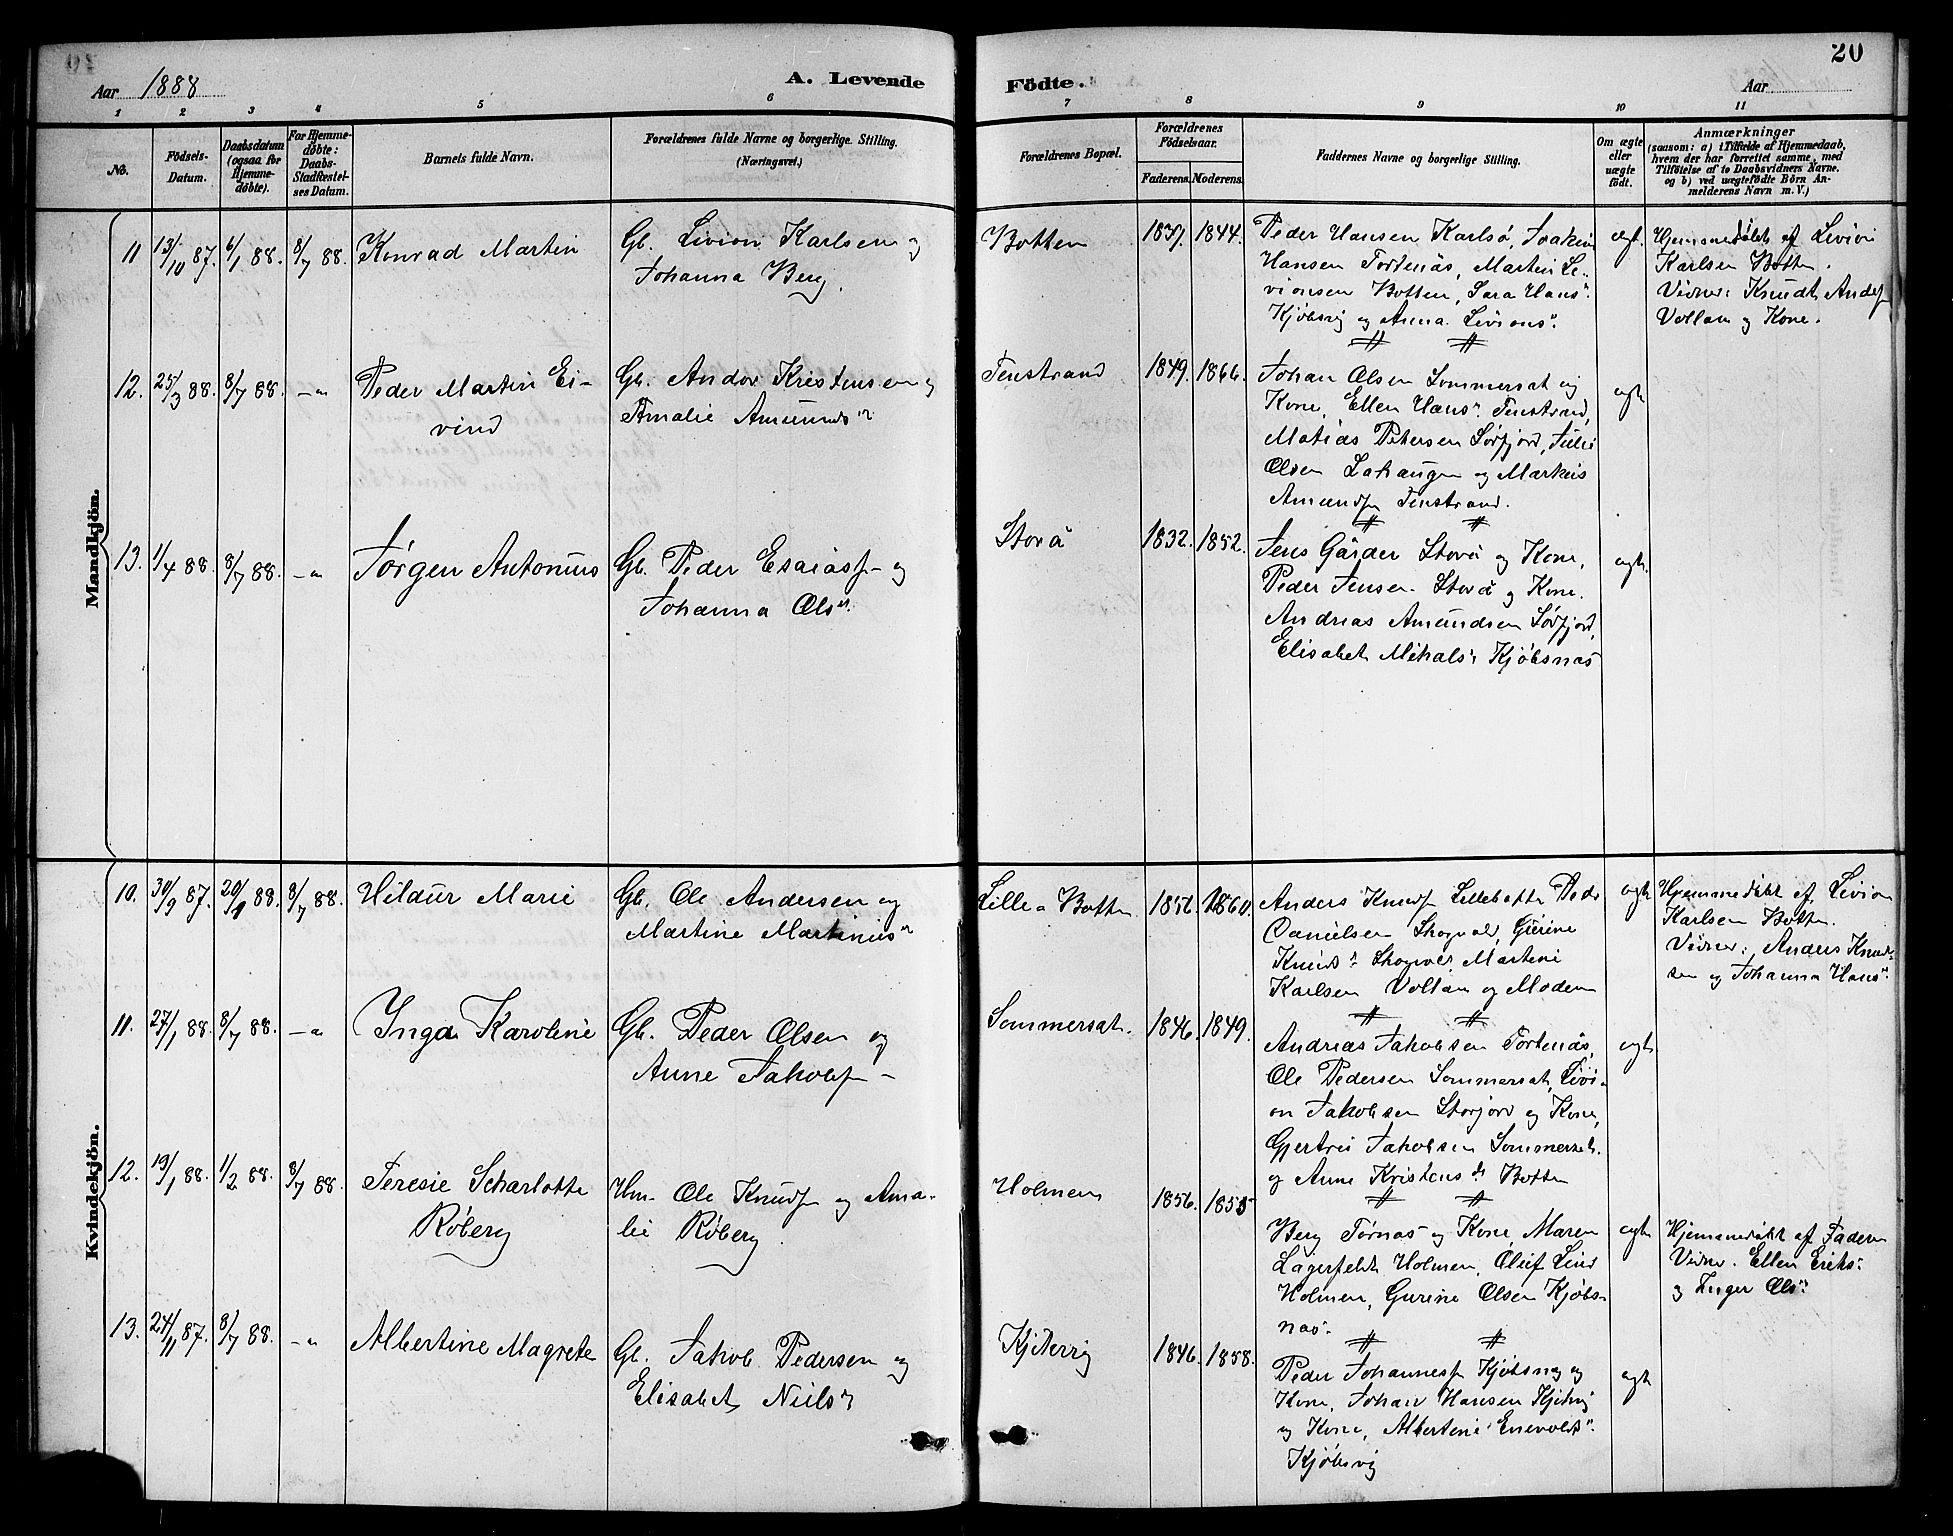 20
Aar 1888
A. Levende
Födte.
Aar
1 2 3 4 5 6 7 8 9 10 11
No.
Födsels-
Datum.
Daabsdatum
(ogsaa for
Hjemme-
döbte).
For Hjemme-
döbte:
Daabs-
Stadfæstel-
ses Datum.
Barnets fulde Navn.
Forældrenes fulde Navne og borgerlige Stilling.
(Næringsvei.)
Forældrenes Bopæl.
Forældrenes
Födselsaar.
Faderens. Moderens.
Faddernes Navne og borgerlige Stilling.
Om ægte
eller
uægte
födt.
Anmærkninger
(saasom: a) i Tilfælde af Hjemmedaab,
hvem der har forrettet samme, med
Tilföielse af to Daabsvidners Navne,
og b) ved uægtefödte Börn An-
melderens Navn m. V.)
Mandkjön.
11 13/10 87. 6/1 88. 8/7 88. Konrad Martin
Gb. Livion Karlsen og
Johanna Berg.
Botten
1837. 1844.
Peder Hansen Karlsö, Joakim
Hansen Tortenäs, Martin Le-
vionsen Botten, Sara Hans".
Kjöbsvig og Anna Livions".
ægt.
Hjemmedöbt af Livion
Karlsen Botten.
Vidner: Knudt Anders
Vollan og Kone.
12. 25/3 88. 8/7 88. -"-
Peder Martin Ei-
vind
Gb. Andor Kristensen og
Amalie Amunds"
Tenstrand
1849. 1866.
Johan Olsen Sommersat og
Kone, Ellen Hans" Tenstrand,
Matias Petersen Sörfjord, Julie
Olsen Lahaugen og Markus
Amunds Tenstrand.
ægt.
13. 1/4 88. 8/7 88. -"- Jörgen Antonius
Gb. Peder Esaias- og
Johanna Ols".
Storå
1832. 1852.
Jens Gärder Storå og Kone,
Peder Jensen Storå og Kone.
Andreas Amundsen Sörfjord,
Elisabet Mikals" Kjöbsnäs
ægt.
Kvindekjön.
10. 30/9 87. 20/1 88. 8/7 88. Hildur Marie
Gb. Ole Andersen og
Martine Martinius"
Lille Botten
1856. 1860.
Anders Knuds Lillebotten Peder
Danielsen Skogvold, Gurine
Knuds" Skogvold, Martine
Karlsen Vollan og Moderen
ægt
Hjemmedöbt af Livion
Karlsen Botten.
Vidner: Anders Knud-
sen og Johanna Hans"
11. 27/1 88. 8/7 88. -"- Inga Karoline
Gb. Peder Olsen og
Anne Jakobs-
Sommersat.
1846. 1849.
Andreas Jakobsen Tortenäs,
Ole Pedersen Sommersat, Livi-
on Jakobsen Storjord og Kone,
Gjertrui Jakobsen Sommerset.
og Anne Kristens" Botten
ægt.
12. 19/1 88. 1/2 88. 8/7 88. Teresie Scharlotte
Röberg
Hm. Ole Knuds og Ama-
lie Röberg.
Holmen
1856. 1855
Berg Törnäs og Kone, Maren
Lagerfeldt Holmen, Oluf Lind
Holmen, Gurine Olsen Kjöbs-
näs.
ægt
Hjemmedöbt af Faderen
Vidner. Ellen Eriks"
og Inger Ols"
13. 24/11 87. 8/7 88. -"- Albertine Magrete
Gb. Jakob Pedersen og
Elisabet Niels"
1846. 1858.
Peder Johannes Kjöbsvig og
Kone, Johan Hansen
og Kone, Albertine Enevolds"
Kjöbsvig
ægt